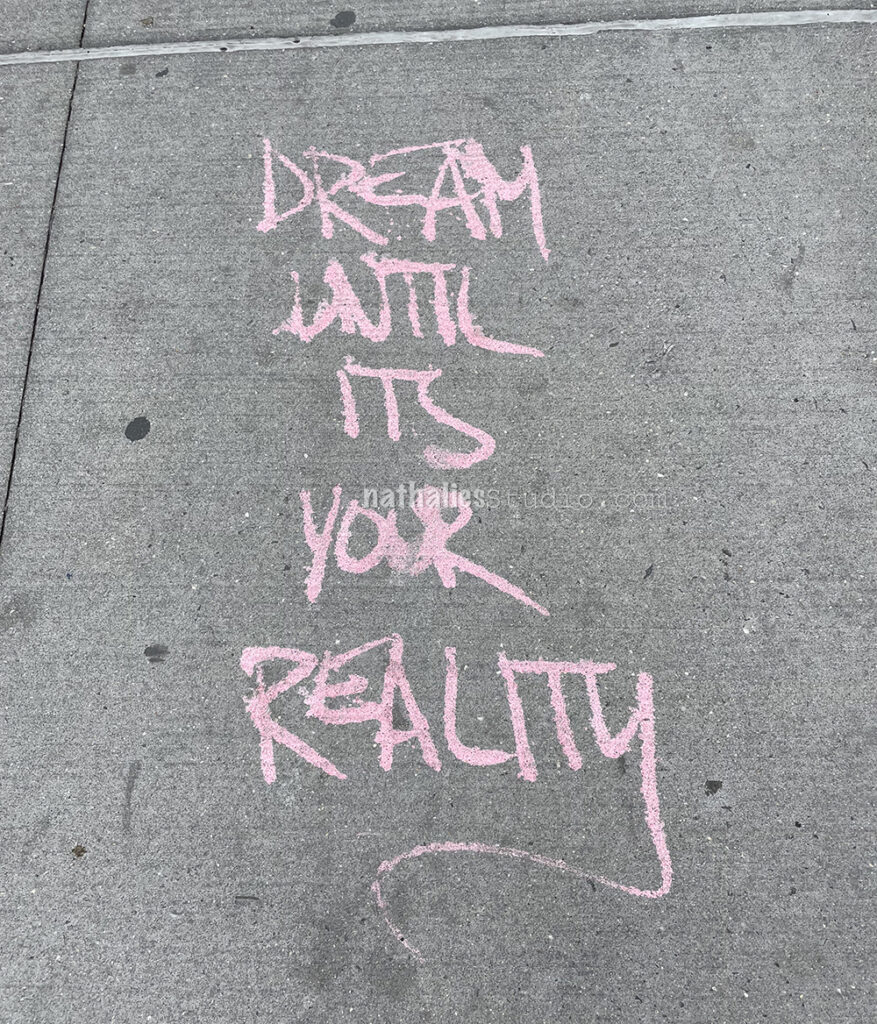 DREAM
UNTIL
ITS
nathaliesstudio.com
YOUR
REALITY